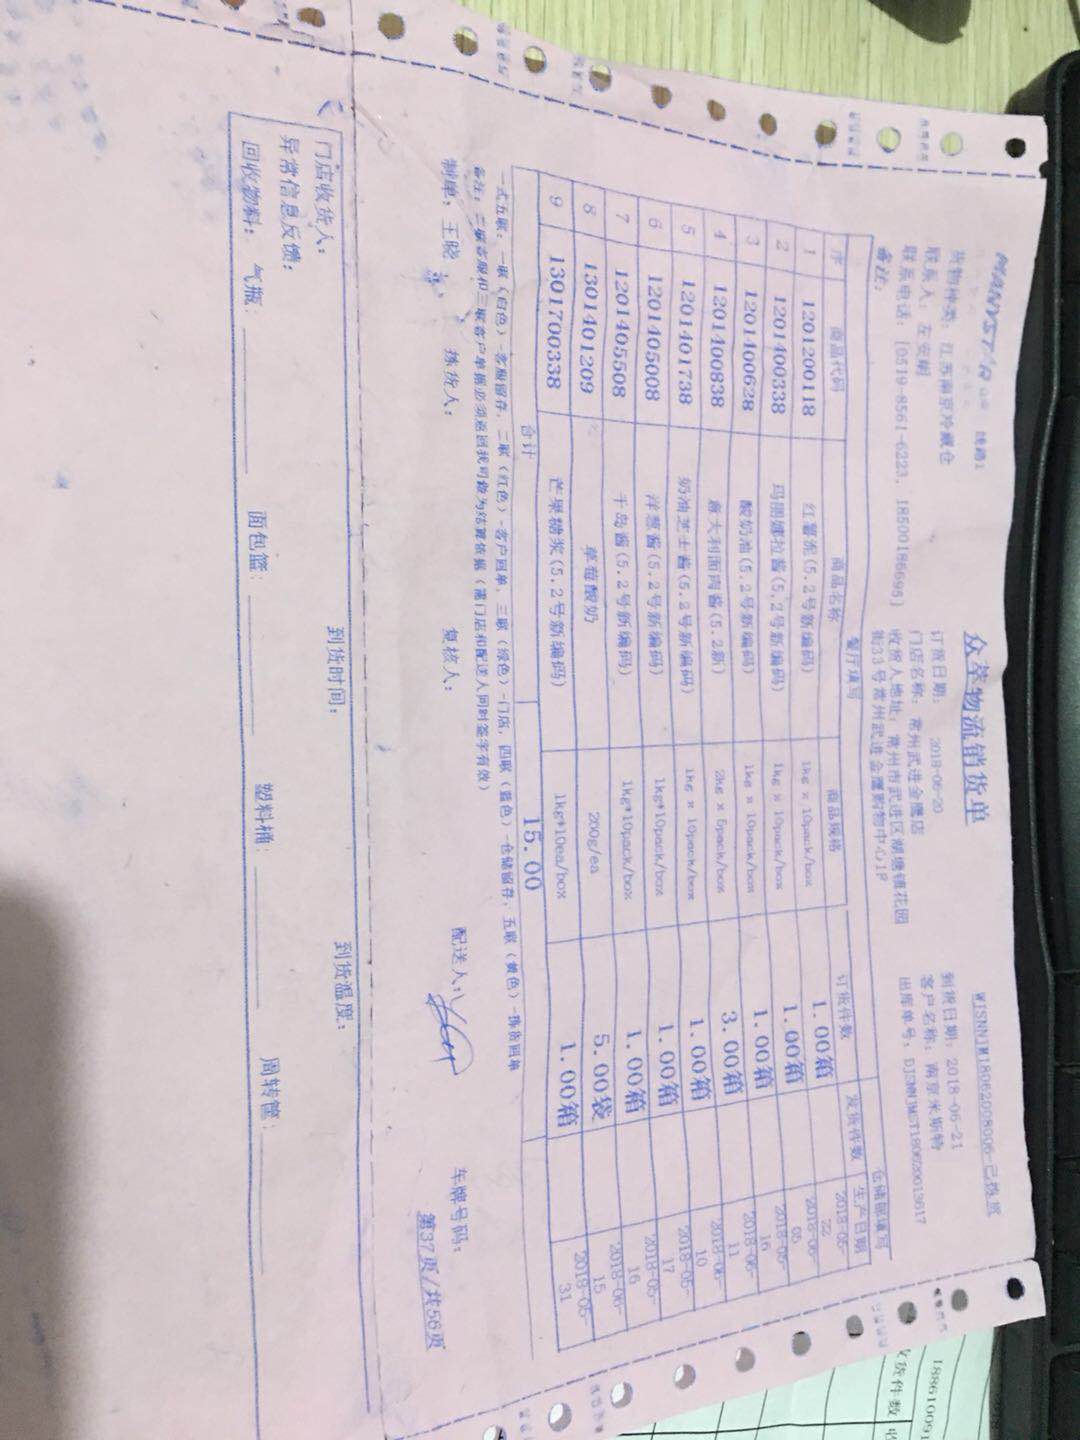 众萃物流销货单
WJSNNJM18062008006-已拣货
MANYSTAR 线路1
货物种类: 江苏南京冷藏仓
订货日期: 2018-06-20
到货日期: 2018-06-21
联系人: 左安朝
门店名称: 常州武进金鹰店
客户名称: 南京米斯特
联系电话: [0519-8561-6223、18500186695]
收货人地址: 常州市武进区湖塘镇花园街33号常州武进金鹰购物中心1F
出库单号:
备注:
餐厅填写 仓储部填写
序 商品代码 商品名称 商品规格 订货件数 发货件数 生产日期
1 1201200118 红薯泥(5.2号新编码) 1kg x 10pack/box 1.00箱 2018-05-22
2 1201400338 玛丽娜拉酱(5.2号新编码) 1kg x 10pack/box 1.00箱 2018-06-05
3 1201400628 酸奶油(5.2号新编码) 1kg x 10pack/box 1.00箱 2018-05-16
4 1201400838 意大利面肉酱(5.2新) 2kg x 6pack/box 3.00箱 2018-06-11
5 1201401738 奶油芝士酱(5.2号新编码) 1kg x 10pack/box 1.00箱 2018-06-10
6 1201405008 洋葱酱(5.2号新编码) 1kg*10pack/box 1.00箱 2018-05-17
7 1201405508 千岛酱(5.2号新编码) 1kg*10pack/box 1.00箱 2018-05-16
8 1301401209 草莓酸奶 200g/ea 5.00袋 2018-06-15
9 1301700338 芒果糖浆(5.2号新编码) 1kg*10ea/box 1.00箱 2018-05-31
合计 15.00
一式五联: 一联(白色)-客服留存, 二联(红色)-客户回单, 三联(绿色)-门店, 四联(蓝色)-仓储留存, 五联(黄色)-拣货回单
备注: 二联客服和三联客户单据必须返回我司做为结算依据(需门店和配送人同时签字有效)
制单: 王晓 拣货人: 复核人: 配送人: 车牌号码:
第37页/共56页
门店收货人: 到货时间: 到货温度:
异常信息反馈:
回收物料: 气瓶: 面包篮: 塑料桶: 周转筐: